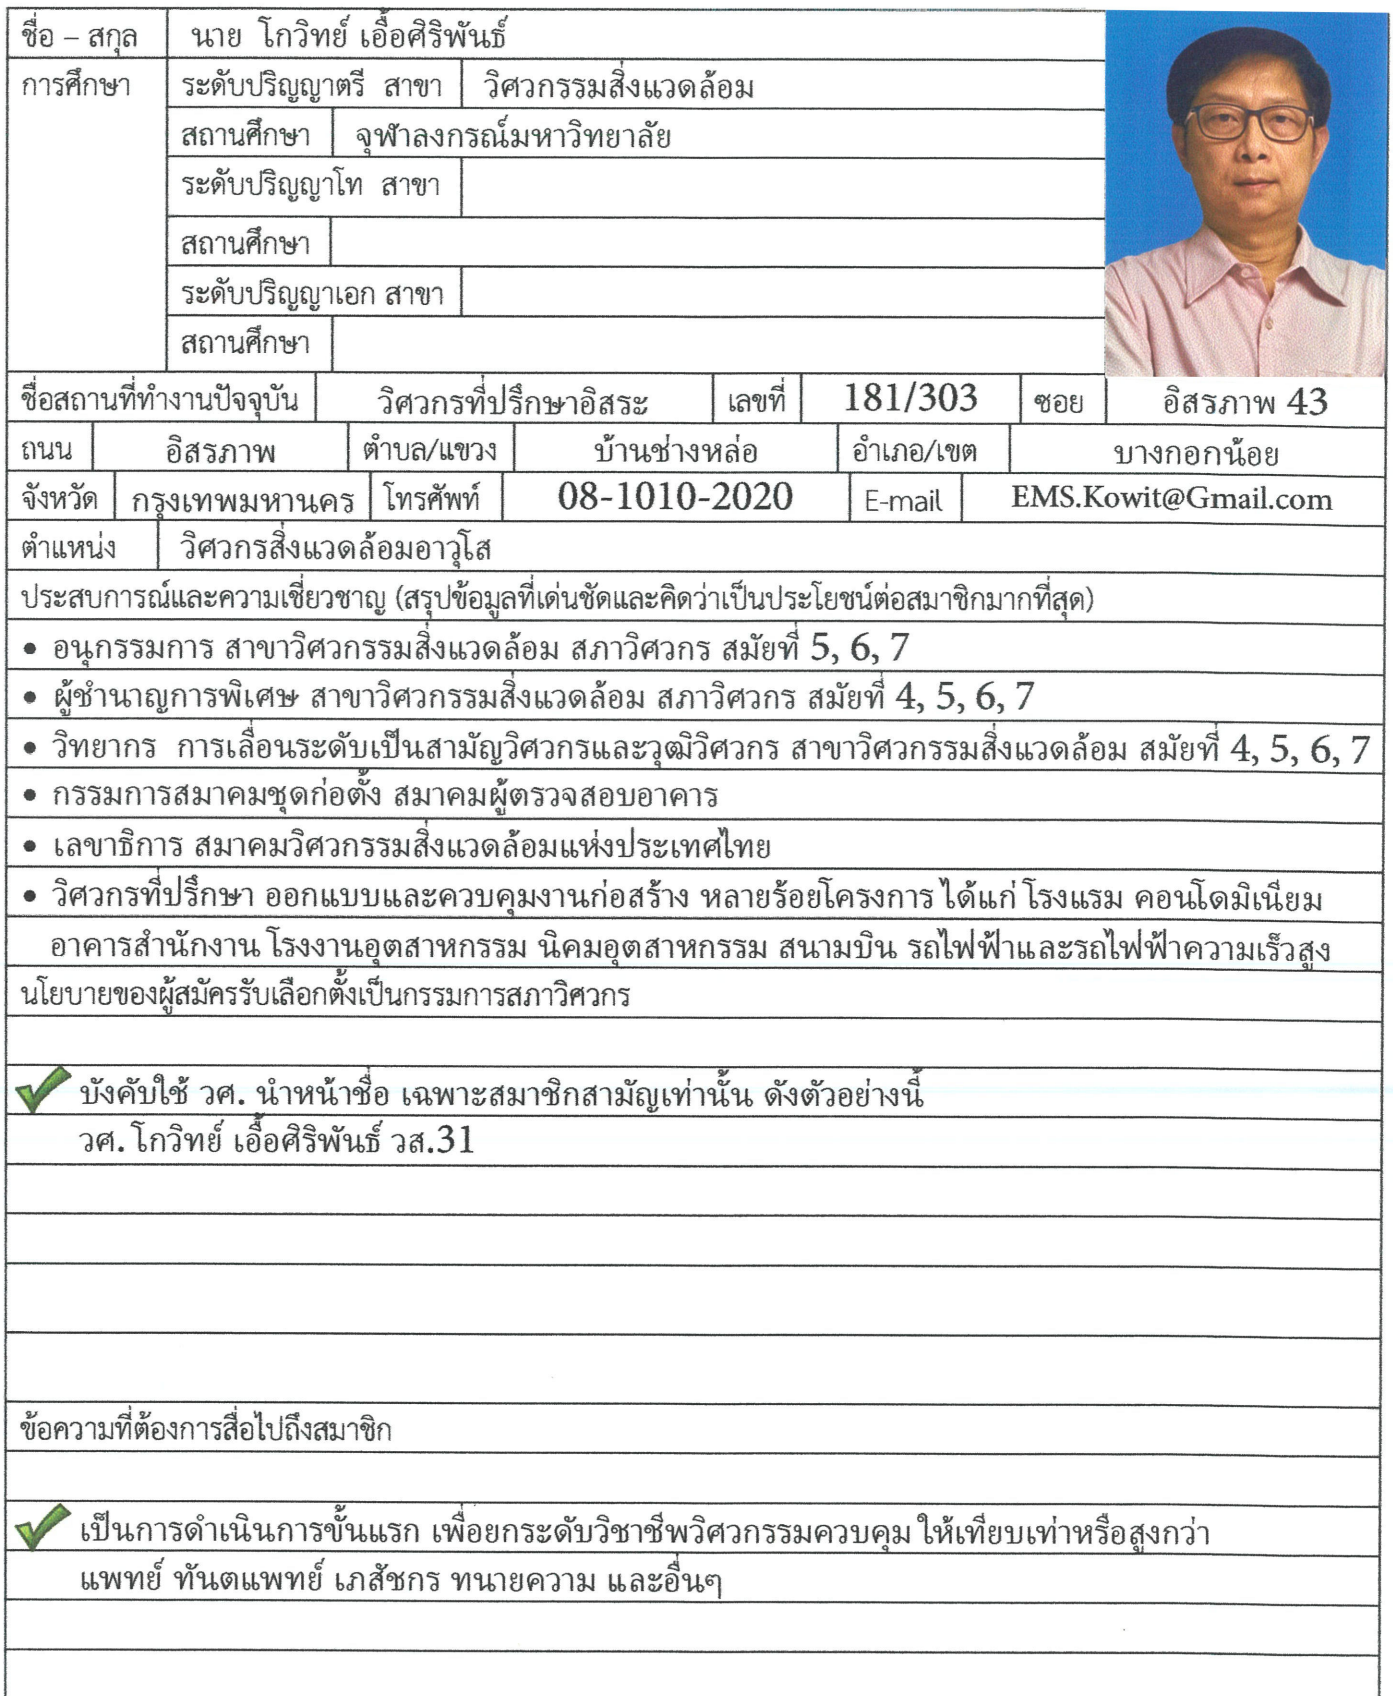 ชื่อ – สกุล นาย โกวิทย์ เอื้อศิริพันธ์
การศึกษา ระดับปริญญาตรี สาขา วิศวกรรมสิ่งแวดล้อม
สถานศึกษา จุฬาลงกรณ์มหาวิทยาลัย
ระดับปริญญาโท สาขา
สถานศึกษา
ระดับปริญญาเอก สาขา
สถานศึกษา
ชื่อสถานที่ทำงานปัจจุบัน วิศวกรที่ปรึกษาอิสระ เลขที่ 181/303 ซอย อิสรภาพ 43
ถนน อิสรภาพ ตำบล/แขวง บ้านช่างหล่อ อำเภอ/เขต บางกอกน้อย
จังหวัด กรุงเทพมหานคร โทรศัพท์ 08-1010-2020 E-mail EMS.Kowit@Gmail.com
ตำแหน่ง วิศวกรสิ่งแวดล้อมอาวุโส
ประสบการณ์และความเชี่ยวชาญ (สรุปข้อมูลที่เด่นชัดและคิดว่าเป็นประโยชน์ต่อสมาชิกมากที่สุด)
• อนุกรรมการ สาขาวิศวกรรมสิ่งแวดล้อม สภาวิศวกร สมัยที่ 5, 6, 7
• ผู้ชำนาญการพิเศษ สาขาวิศวกรรมสิ่งแวดล้อม สภาวิศวกร สมัยที่ 4, 5, 6, 7
• วิทยากร การเลื่อนระดับเป็นสามัญวิศวกรและวุฒิวิศวกร สาขาวิศวกรรมสิ่งแวดล้อม สมัยที่ 4, 5, 6, 7
• กรรมการสมาคมชุดก่อตั้ง สมาคมผู้ตรวจสอบอาคาร
• เลขาธิการ สมาคมวิศวกรรมสิ่งแวดล้อมแห่งประเทศไทย
• วิศวกรที่ปรึกษา ออกแบบและควบคุมงานก่อสร้าง หลายร้อยโครงการ ได้แก่ โรงแรม คอนโดมิเนียม
อาคารสำนักงาน โรงงานอุตสาหกรรม นิคมอุตสาหกรรม สนามบิน รถไฟฟ้าและรถไฟฟ้าความเร็วสูง
นโยบายของผู้สมัครรับเลือกตั้งเป็นกรรมการสภาวิศวกร
บังคับใช้ วศ. นำหน้าชื่อ เฉพาะสมาชิกสามัญเท่านั้น ดังตัวอย่างนี้
วศ. โกวิทย์ เอื้อศิริพันธ์ วส.31
ข้อความที่ต้องการสื่อไปถึงสมาชิก
เป็นการดำเนินการขั้นแรก เพื่อยกระดับวิชาชีพวิศวกรรมควบคุม ให้เทียบเท่าหรือสูงกว่า
แพทย์ ทันตแพทย์ เภสัชกร ทนายความ และอื่นๆ